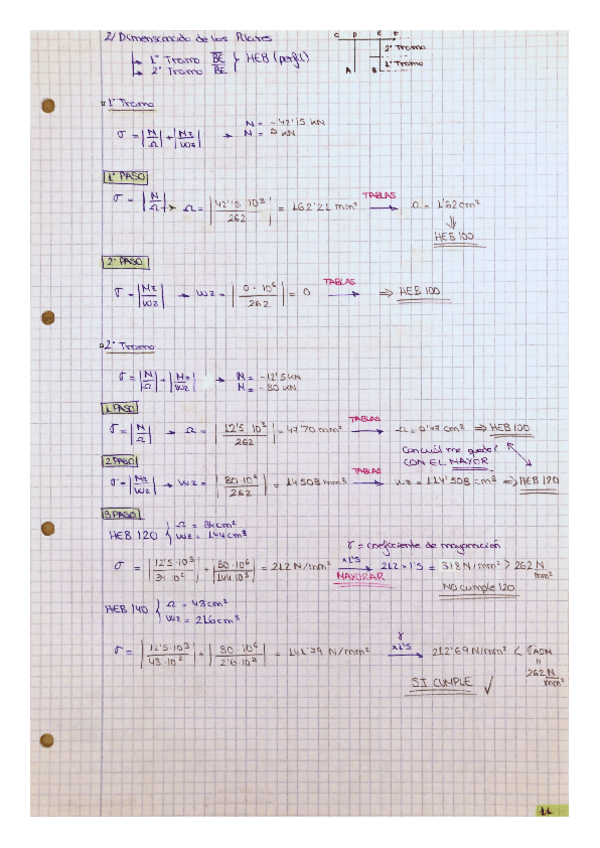 2/ Dimensionado de los Pilares
1º Tramo BE
2º Tramo BE } HEB (perfil)
C D E F
2º Tramo
1º Tramo
A B
1º Tramo
σ = |N/Ω| + |Mz/Wz| → N = -42'15 kN
M = 0 kN
1º PASO
σ = |N/Ω| → Ω = |42'15·10³/262| = 162'21 mm² TABLAS → Ω = 1'62 cm²
⇓
HEB 100
2º PASO
σ = |Mz/Wz| → Wz = |0·10⁶/262| = 0 TABLAS → ⇒ HEB 100
2º Tramo
σ = |N/Ω| + |Mz/Wz| → N = -12'5 kN
M = -30 kN
1 PASO
σ = |N/Ω| → Ω = |12'5 10³/262| = 47'70 mm² TABLAS → Ω = 0'47 cm² ⇒ HEB 100
Con cuál me quedo?
CON EL MAYOR
2 PASO
σ = |Mz/Wz| → Wz = |30·10⁶/262| = 114508 mm³ TABLAS → Wz = 114'508 cm³ ⇒ HEB 120
3 PASO
HEB 120 { Ω = 34 cm²
Wz = 144 cm³
γ = coeficiente de mayoración
σ = |12'5·10³/34·10²| + |30·10⁶/144·10³| = 212 N/mm² ×1'5 MAYORAR → 212×1'5 = 318 N/mm² > 262 N/mm²
NO cumple 120
HEB 140 { Ω = 43 cm²
Wz = 216 cm³
σ = |12'5·10³/43·10²| + |30·10⁶/216·10³| = 141'79 N/mm² γ ×1'5 → 212'69 N/mm² < σADM
=
262 N/mm²
SI CUMPLE ✓
11